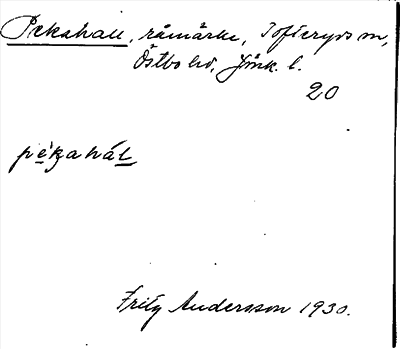 Pekahall, råmärke, Tofteryds sn,
Östbo hd, Jönk. l.
20
pèkahál
Fritz Andersson 1930.